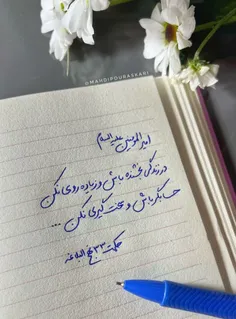 @MAHDIPOURASKARI
امیرالمؤمنین علیه السلام
در زندگی بخشنده باش و زیاده روی نکن
حسابگر باش و سخت گیری نکن ...
حکمت ۳۳ نهج البلاغه